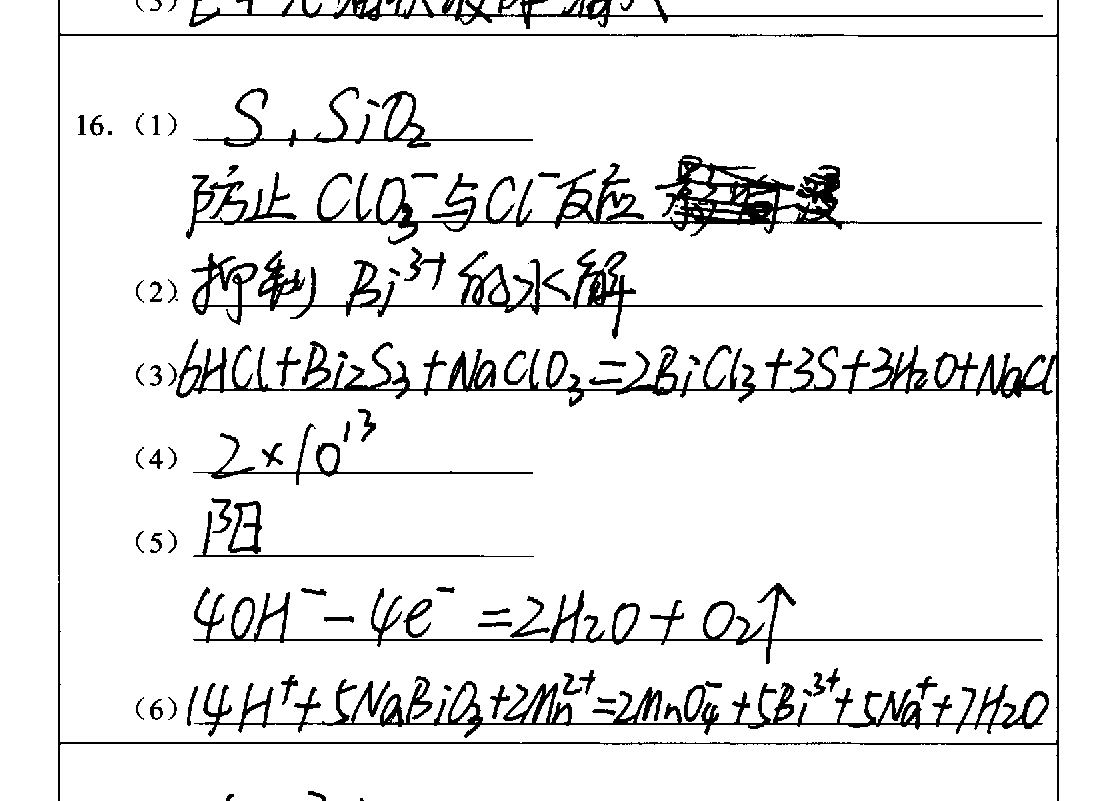 (3)
16.（1） S，SiO₂
防止 ClO₃⁻与Cl⁻反应
（2）抑制 Bi³⁺的水解
（3）6HCl+Bi₂S₃+NaClO₃=2BiCl₃+3S+3H₂O+NaCl
（4） 2×10¹³
（5） 阳
4OH⁻-4e⁻=2H₂O+O₂↑
（6）14H⁺+5NaBiO₃+2Mn²⁺=2MnO₄⁻+5Bi³⁺+5Na⁺+7H₂O